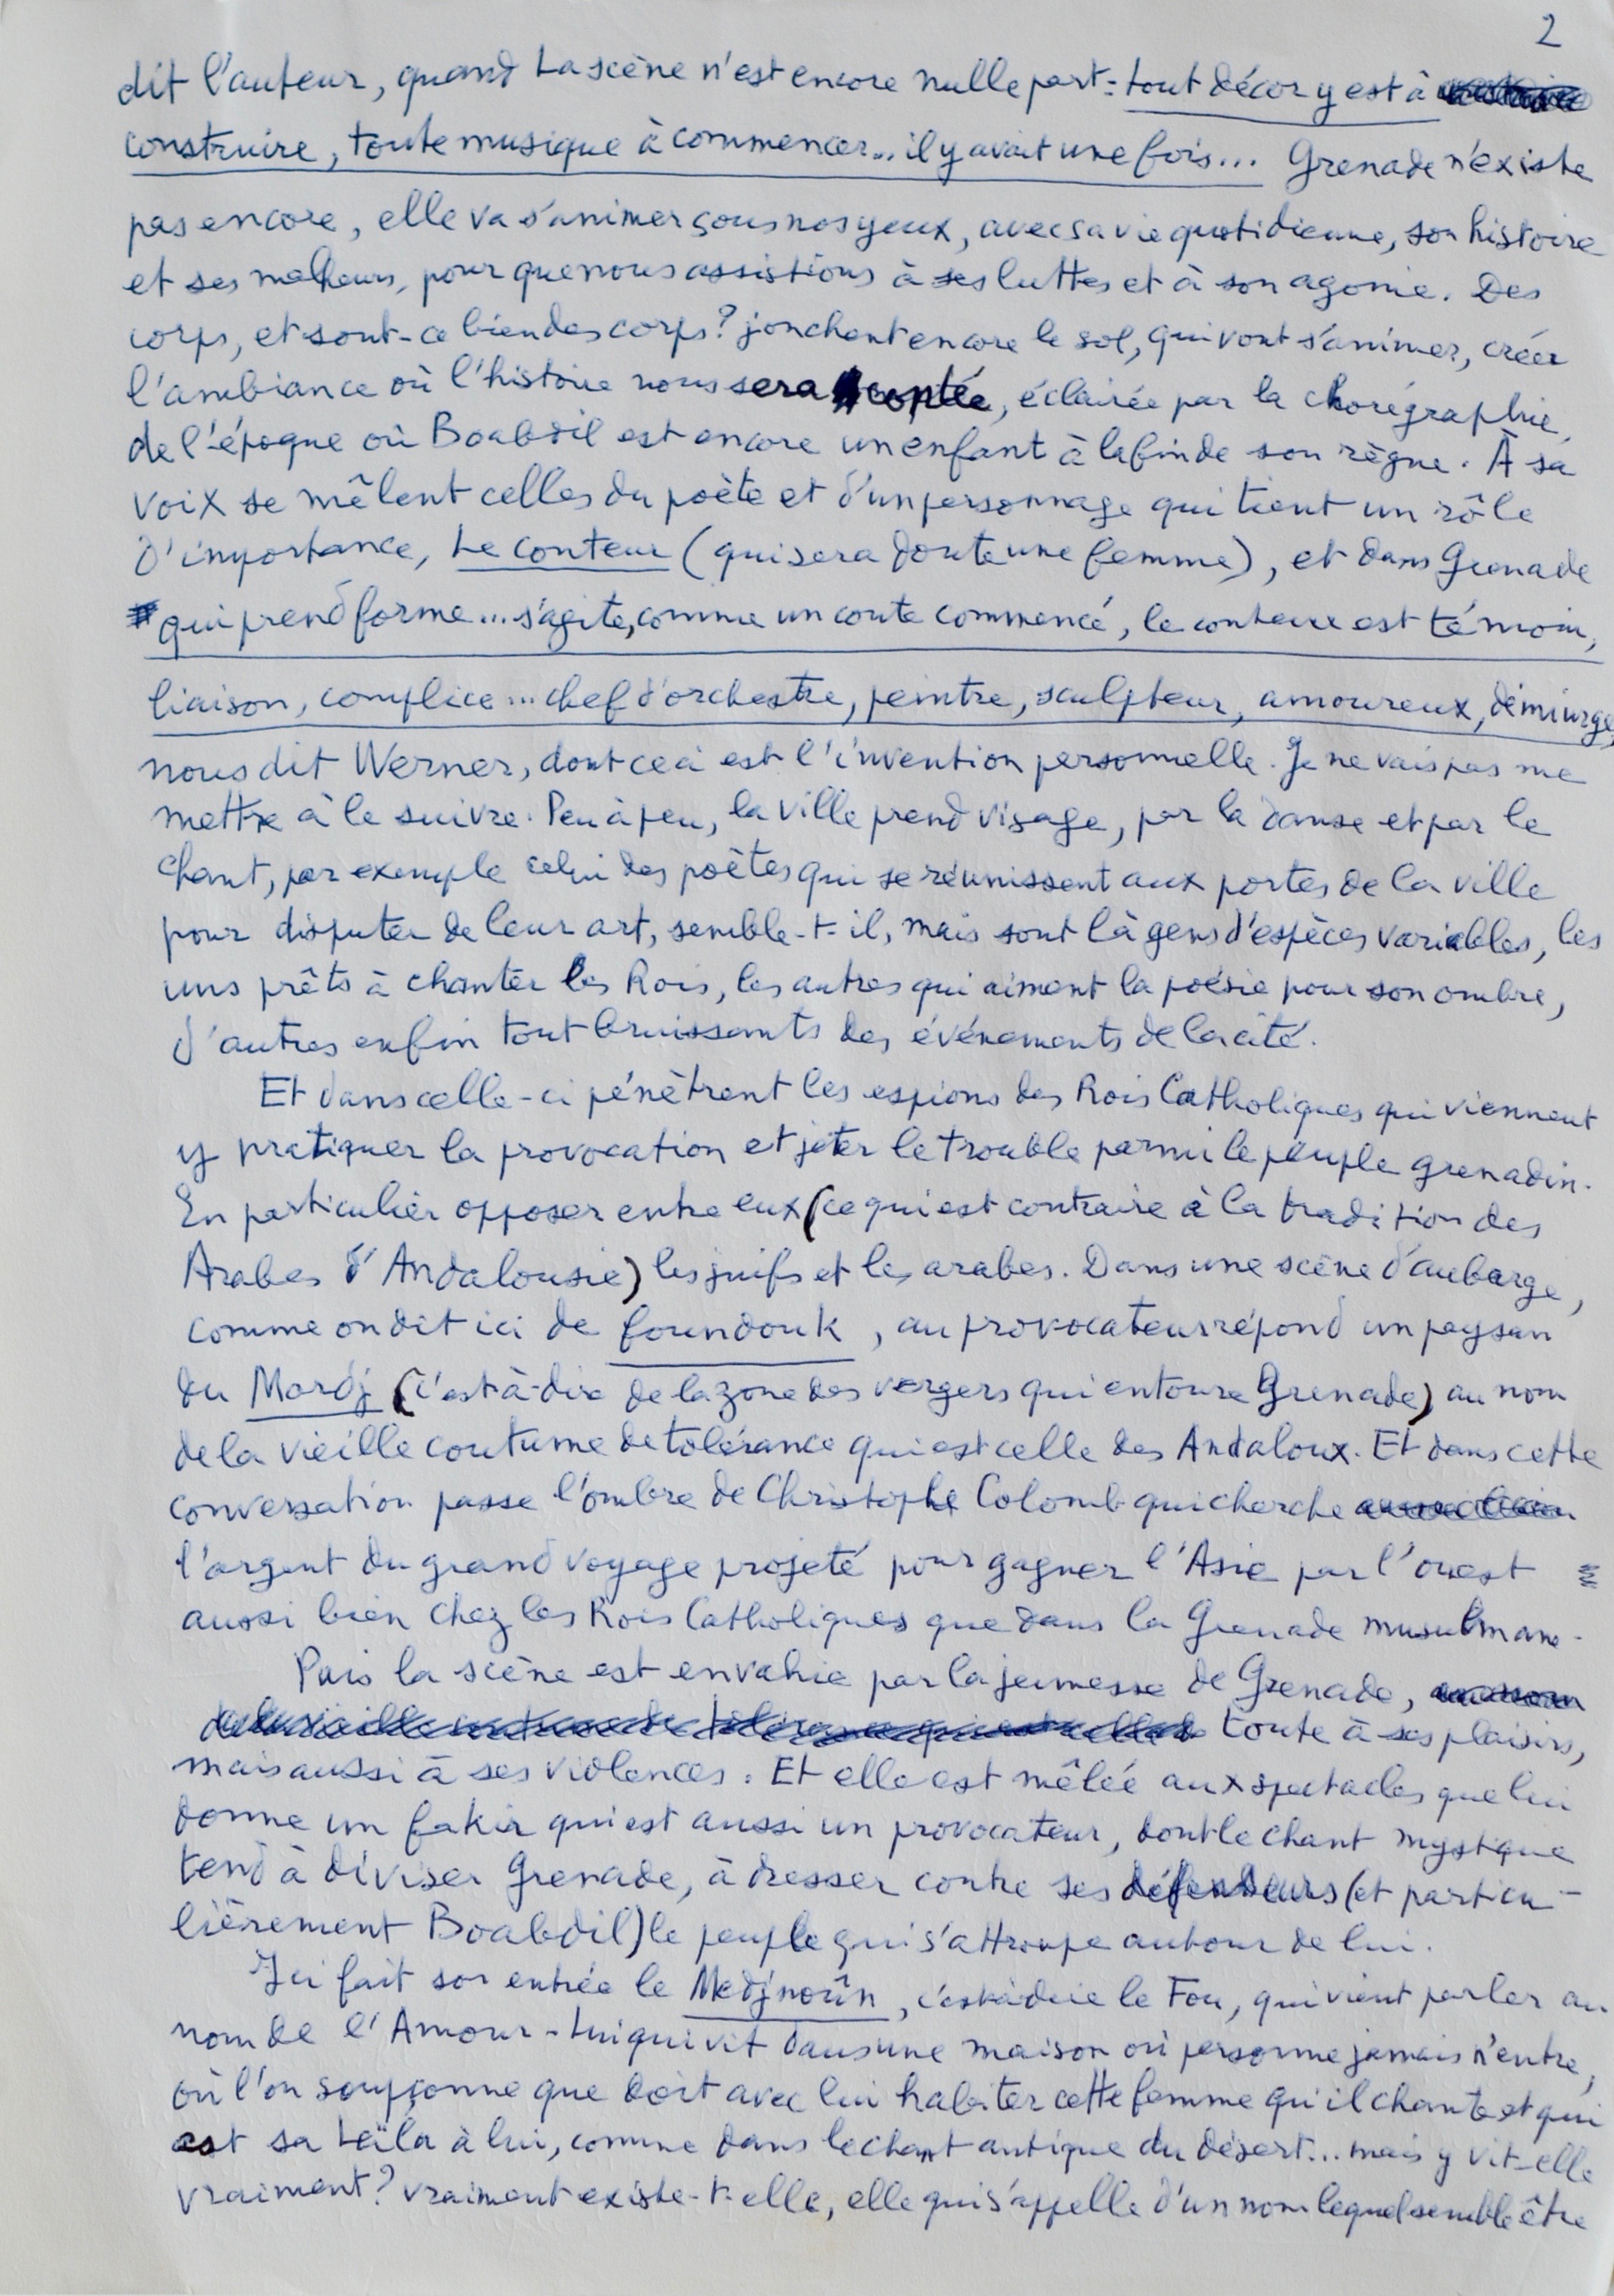 2
dit l'auteur, quand la scène n'est encore nulle part : tout décor y est à
construire, toute musique à commencer... il y avait une fois... Grenade n'existe
pas encore, elle va s'animer sous nos yeux, avec sa vie quotidienne, son histoire
et ses malheurs, pour que nous assistions à ses luttes et à son agonie. Des
corps, et sont-ce bien des corps? jonchent encore le sol, qui vont s'animer, créer
l'ambiance où l'histoire nous sera contée, éclairée par la chorégraphie,
de l'époque où Boabdil est encore un enfant à la fin de son règne. À sa
voix se mêlent celles du poète et d'un personnage qui tient un rôle
d'importance, Le conteur (qui sera doute une femme), et dans Grenade
qui prend forme... s'agite, comme un conte commencé, le conteur est témoin,
liaison, complice... chef d'orchestre, peintre, sculpteur, amoureux, démiurge,
nous dit Werner, dont ceci est l'invention personnelle. Je ne vais pas me
mettre à le suivre. Peu à peu, la ville prend visage, par la danse et par le
chant, par exemple celui des poètes qui se réunissent aux portes de la ville
pour disputer de leur art, semble-t-il, mais sont là gens d'espèces variables, les
uns prêts à chanter les Rois, les autres qui aiment la poésie pour son ombre,
d'autres enfin tout bruissants des événements de la cité.
Et dans celle-ci pénètrent les espions des Rois Catholiques qui viennent
y pratiquer la provocation et jeter le trouble parmi le peuple grenadin.
En particulier opposer entre eux (ce qui est contraire à la tradition des
Arabes d'Andalousie) les juifs et les arabes. Dans une scène d'auberge,
comme on dit ici de foundouk, au provocateur répond un paysan
du Mardj (c'est-à-dire de la zone des vergers qui entoure Grenade) au nom
de la vieille coutume de tolérance qui est celle des Andaloux. Et dans cette
conversation passe l'ombre de Christophe Colomb qui cherche
l'argent du grand voyage projeté pour gagner l'Asie par l'ouest
aussi bien chez les Rois Catholiques que dans la Grenade musulmane.
Puis la scène est envahie par la jeunesse de Grenade,
toute à ses plaisirs,
mais aussi à ses violences. Et elle est mêlée aux spectacles que lui
donne un fakir qui est aussi un provocateur, dont le chant mystique
tend à diviser Grenade, à dresser contre ses défenseurs (et particu-
lièrement Boabdil) le peuple qui s'attroupe autour de lui.
Ici fait son entrée le Medjnoûn, c'est-à-dire le Fou, qui vient parler au
nom de l'Amour - Lui qui vit dans une maison où personne jamais n'entre,
où l'on soupçonne que doit avec lui habiter cette femme qu'il chante et qui
est sa Leïla à lui, comme dans le chant antique du désert... mais y vit-elle
vraiment? vraiment existe-t-elle, elle qui s'appelle d'un nom lequel semble être